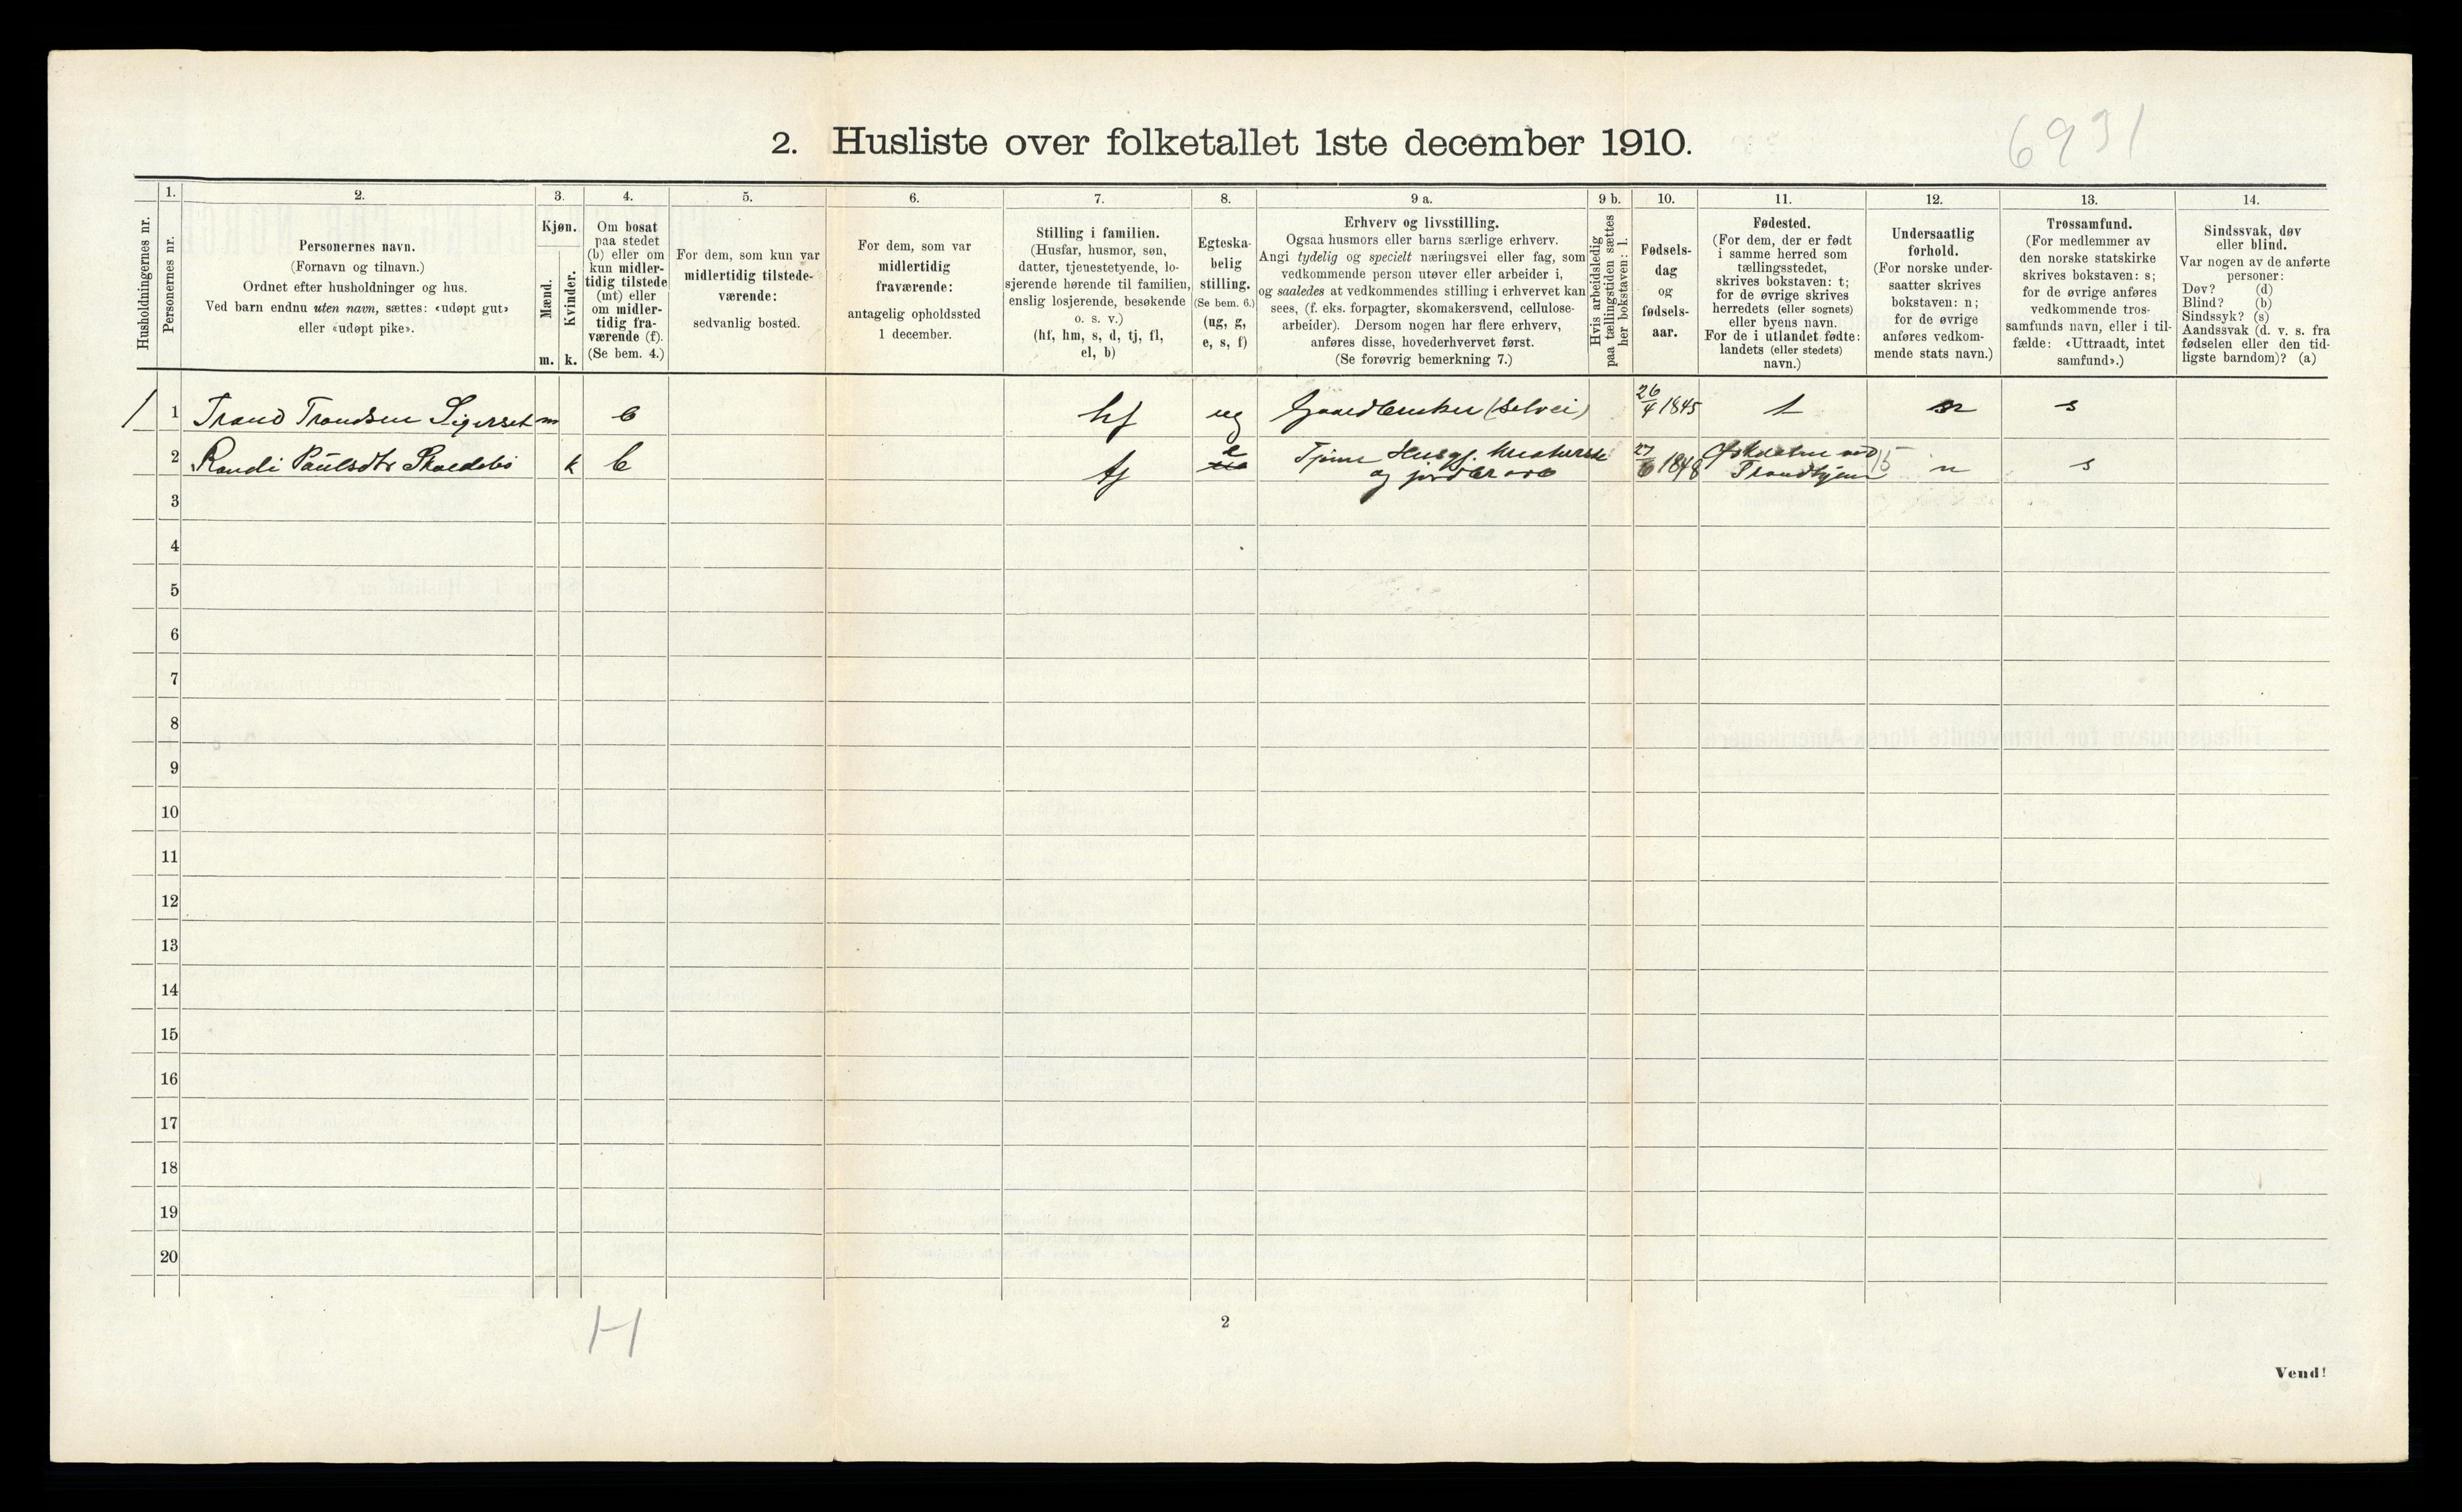 6931
2. Husliste over folketallet 1ste december 1910.
Husholdningernes nr.
1.
Personernes nr.
2.
Personernes navn.
(Fornavn og tilnavn.)
Ordnet efter husholdninger og hus.
Ved barn endnu uten navn, sættes: «udøpt gut»
eller «udøpt pike».
3.
Kjøn.
Mænd.
m.
Kvinder.
k.
4.
Om bosat
paa stedet
(b) eller om
kun midler-
tidig tilstede
(mt) eller
om midler-
tidig fra-
værende (f).
(Se bem. 4.)
5.
For dem, som kun var
midlertidig tilstede-
værende:
sedvanlig bosted.
6.
For dem, som var
midlertidig
fraværende:
antagelig opholdssted
1 december.
7.
Stilling i familien.
(Husfar, husmor, søn,
datter, tjenestetyende, lo-
sjerende hørende til familien,
enslig losjerende, besøkende
o. s. v.)
(hf, hm, s, d, tj, fl,
el, b)
8.
Egteska-
belig
stilling.
(Se bem. 6.)
(ug, g,
e, s, f)
9 a.
Erhverv og livsstilling.
Ogsaa husmors eller barns særlige erhverv.
Angi tydelig og specielt næringsvei eller fag, som
vedkommende person utøver eller arbeider i,
og saaledes at vedkommendes stilling i erhvervet kan
sees, (f. eks. forpagter, skomakersvend, cellulose-
arbeider). Dersom nogen har flere erhverv,
anføres disse, hovederhvervet først.
(Se forøvrig bemerkning 7.)
9 b.
Hvis arbeidsledig
paa tællingstiden sættes
her bokstaven: l.
10.
Fødsels-
dag
og
fødsels-
aar.
11.
Fødested.
(For dem, der er født
i samme herred som
tællingsstedet,
skrives bokstaven: t;
for de øvrige skrives
herredets (eller sognets)
eller byens navn.
For de i utlandet fødte:
landets (eller stedets)
navn.)
12.
Undersaatlig
forhold.
(For norske under-
saatter skrives
bokstaven: n;
for de øvrige
anføres vedkom-
mende stats navn.)
13.
Trossamfund.
(For medlemmer av
den norske statskirke
skrives bokstaven: s;
for de øvrige anføres
vedkommende tros-
samfunds navn, eller i til-
fælde: «Uttraadt, intet
samfund».)
14.
Sindssvak, døv
eller blind.
Var nogen av de anførte
personer:
Døv? (d)
Blind? (b)
Sindssyk? (s)
Aandssvak (d. v. s. fra
fødselen eller den tid-
ligste barndom)? (a)
1 1 Trond Trondsen m b hf ug Gaardbruker (selvei) 26/4 1845 t n s
2 Randi Paulsdtr k b tj e og 27/6 1848 Trondhjem 15 n s
3
4
5
6
7
8
9
10
11
12
13
14
15
16
17
18
19
20
H
2
Vend!